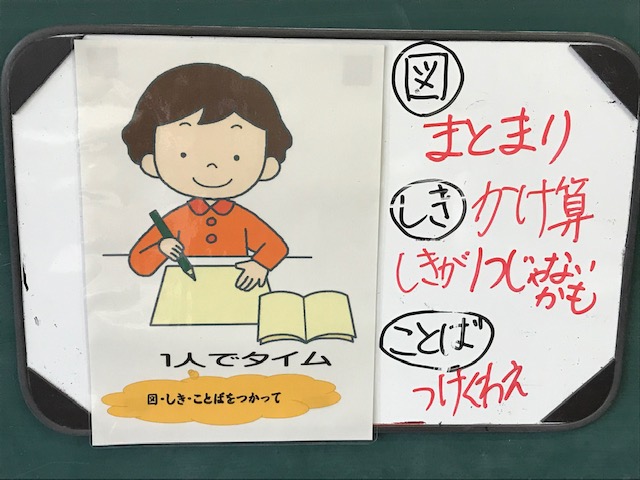 1人でタイム
図・しき・ことばをつかって
図
まとまり
しき かけ算
しきが1つじゃない
かも
ことば
つけくわえ